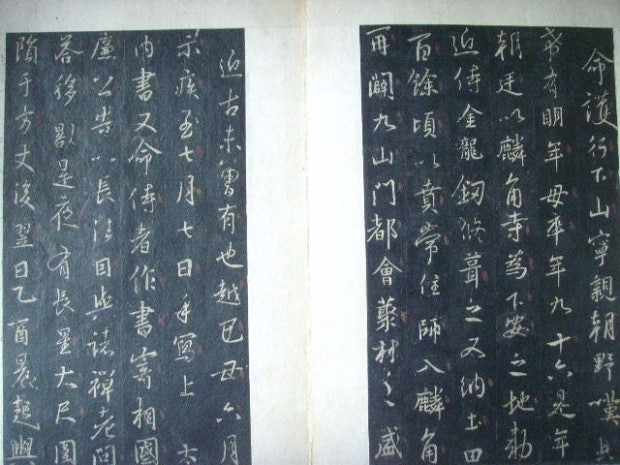 命護行下山寧親朝野嘆其
希有明年母卒年九十六是年
朝廷以麟角寺為下安之地勅
近侍金龍釰修葺之又納土田
百餘頃以賁常住師入麟角
再闢九山門都會叢林之盛
近古未曾有也越己丑六月
示疾至七月七日手寫上大
內書又命侍者作書寄相國
廉公告以長往因與諸禪老問
答移晷是夜有長星大尺圍
隕于方丈後翌日乙酉晨起